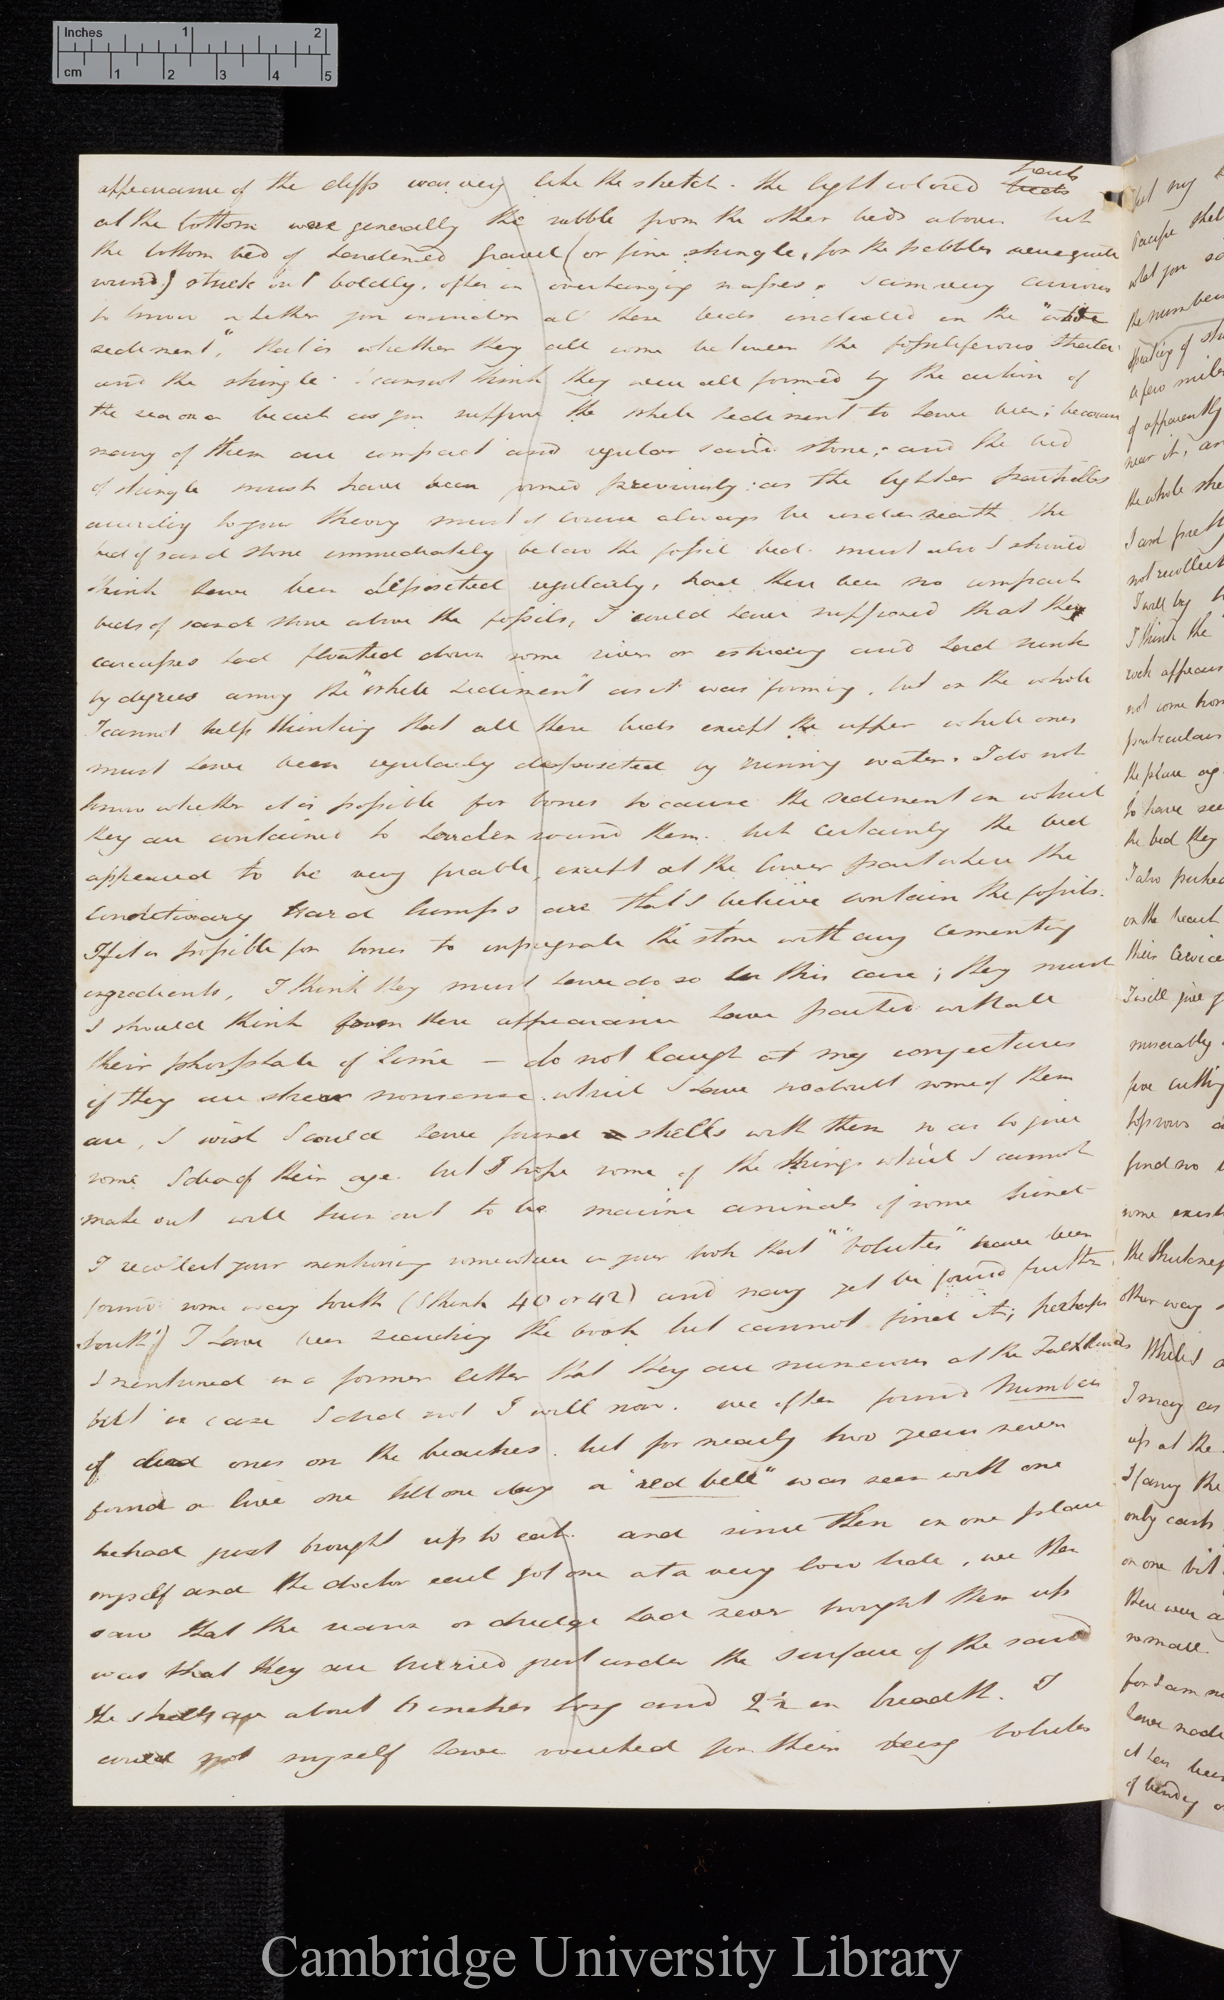 Inches 1 2
cm 1 2 3 4 5
appearance of the cliffs was very like the sketch. the light colored parts
at the bottom were generally the rubble from the other beds above but
the bottom bed of hardened gravel (or fine shingle, for the pebbles were quite
round) stuck out boldly, often in overhanging masses. I am very curious
to know whether you consider all these beds included in the "white
sediment", that is whether they all come between the fossiliferous strata
and the shingle. I cannot think they were all formed by the action of
the sea on a beach as you suppose the white sediment to have been; because
many of them are compact and regular sand stone; and the bed
of shingle must have been formed previously: as the lighter particles
according to your theory must of course always be underneath the
bed of sand stone immediately below the fossil bed. must also I should
think have been deposited regularly, had there been no compact
beds of sand stone above the fossils, I could have supposed that the
carcasses had floated down some river or estuary and had sunk
by degrees among the "white sediment" as it was forming, but on the whole
I cannot help thinking that all these beds except the upper white ones
must have been regularly deposited by running water. I do not
know whether it is possible for bones to cause the sediment in which
they are contained to harden round them. but certainly the bed
appeared to be very friable, except at the lower part where the
concretionary hard lumps are that I believe contain the fossils.
If it is possible for bones to impregnate the stone with any cementing
ingredients, I think they must have do so in this case; they must
I should think from there appearance have parted with all
their phosphate of lime — do not laugh at my conjectures
if they are shear nonsense. which I have no doubt some of them
are, I wish I could have found shells with them so as to give
some Idea of their age. but I hope some of the things which I cannot
make out will turn out to be marine animals of some kind
I recollect your mentioning somewhere in your book that "Volutes" have been
found some way South (I think 40 or 42) and may yet be found further
South) I have been searching the book but cannot find it; perhaps
I mentioned in a former letter that they are numerous at the Falklands
but in case I did not I will now. we often found numbers
of dead ones on the beaches. but for nearly two years never
found a live one till one day a "red bill" was seen with one
he had just brought up to eat. and since then in one place
myself and the doctor each got one at a very low tide, we then
saw that the reason our dredge had never brought them up
was that they are burried just under the surface of the sand
the shells are about 6 inches long and 2½ in breadth. I
could not myself have vouched for their being volutes
but my
Pacific shel
what you sa
the number
speaking of sh
a few miles
of apparently
near it, an
the whole she
I am pretty
not recollect
I will by
I think the
rock appears
not come from
particulars
the place ag
to have see
the bed they
I also picked
on the beach
their cervice
I will give y
miserably
few cutting
top rows a
find no
some exist
the thickness
other way
Whilst a
I may as
up at the
I fancy the
only cast
on one bit
there were a
so small.
for I am n
have made
it has been
of bending o
Cambridge University Library